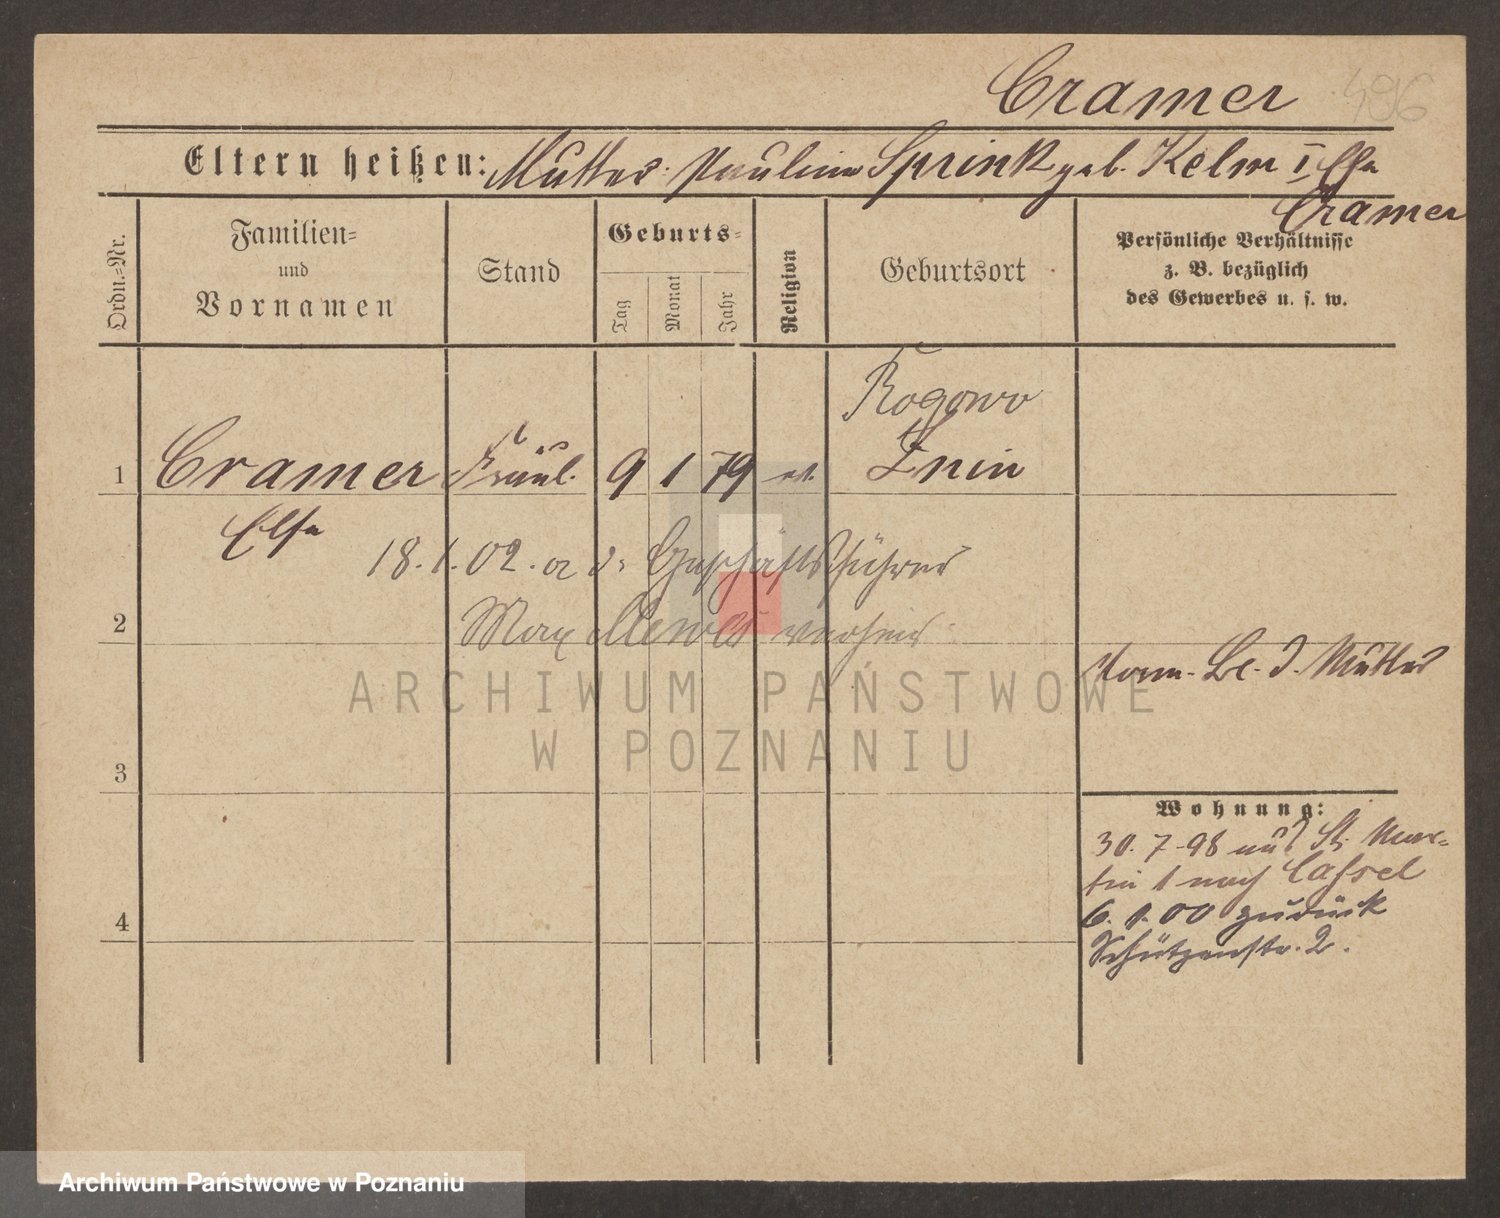 Cramer 496
Eltern heißen: Mutter: Pauline Sprink geb. Kelm I. Ehe
Cramer
Ordn.=Nr.
Familien=
und
Vornamen
Stand
Geburts=
Tag
Monat
Jahr
Religion
Geburtsort
Persönliche Verhältnisse
z. B. bezüglich
des Gewerbes u. s. w.
Rogowo
1 Cramer Fräul. 9 1 79 ev. Znin
Else
18.1.02. a d. Geschäftsführer
2 Max verheir.
Mutter
ARCHIWUM PAŃSTWOWE
W POZNANIU
3
Wohnung:
30.7.98 aus St. Mar=
tin 1 nach Cassel
4 6.1.00 zurück
Schützenstr. 2.
Archiwum Państwowe w Poznaniu